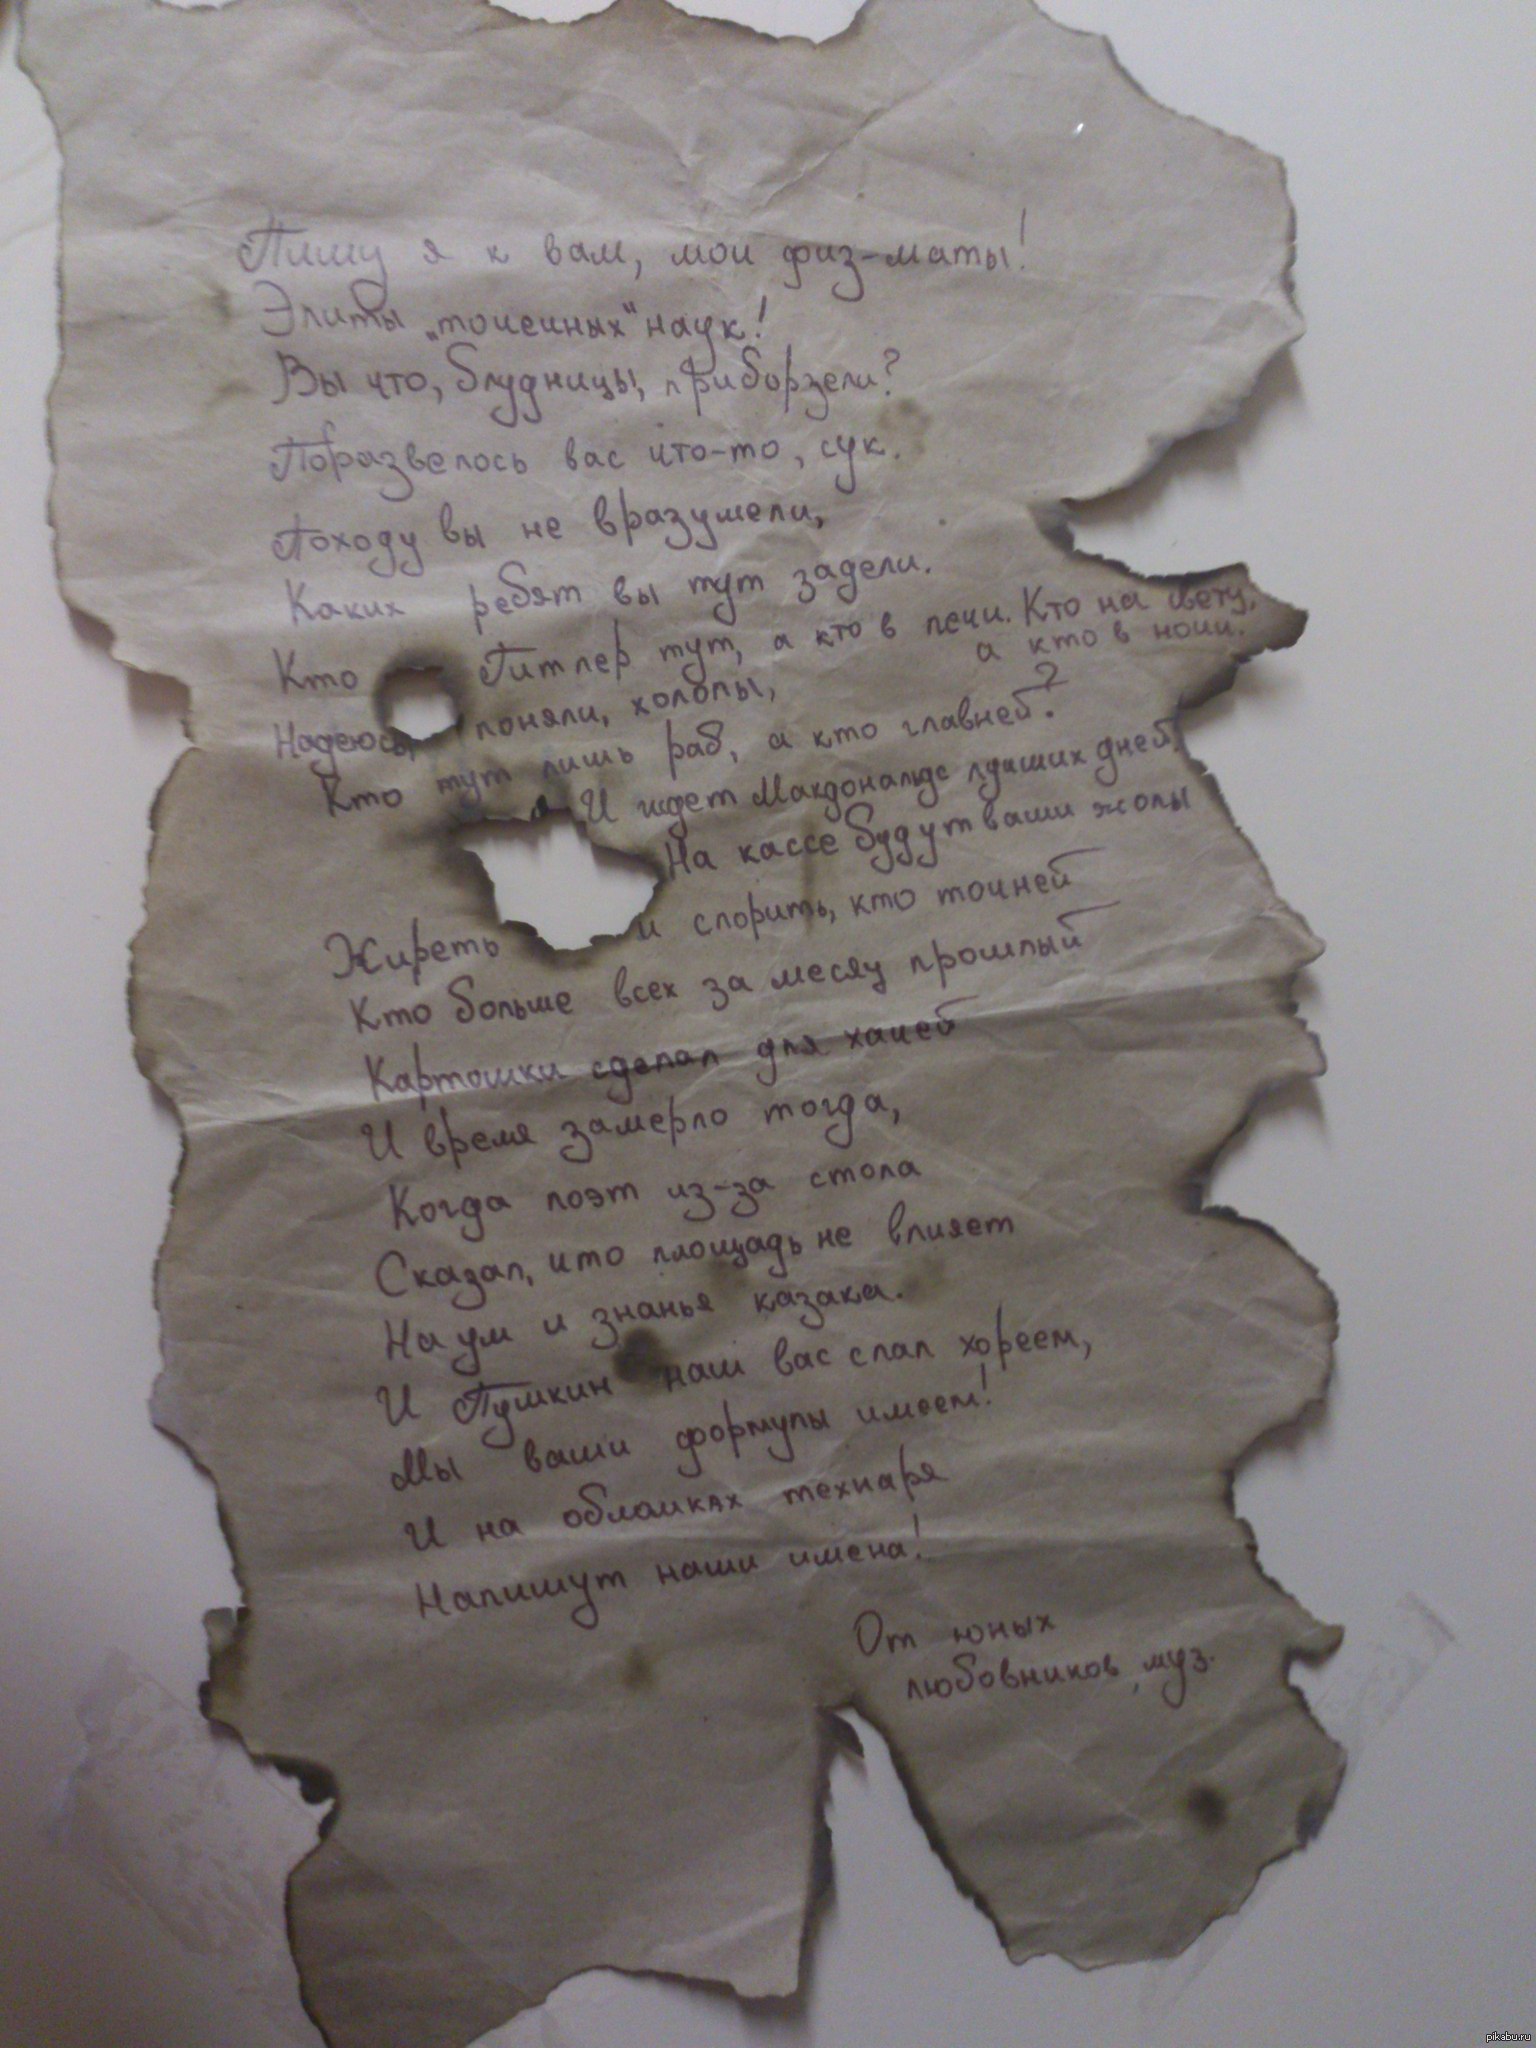 Пишу я к вам, мои физ-маты!
Элиты „точечных" наук!
Вы что, блудницы, приборзели?
Поразвелось вас что-то, сук.
Походу вы не вразумели,
Каких ребят вы тут задели.
Кто Гитлер тут, а кто в печи. Кто на свету,
а кто в ночи.
Надеюсь поняли, холопы,
Кто тут лишь раб, а кто главней?
И ждет Макдональдс лучших дней.
На кассе будут ваши жопы
Жиреть и спорить, кто точней
Кто больше всех за месяц прошлый
Картошки сделал для хачей
И время замерло тогда,
Когда поэт из-за стола
Сказал, что площадь не влияет
На ум и знанья казака.
И Пушкин наш вас слал хореем,
Мы ваши формулы имеем!
И на обломках технаря
Напишут наши имена!
От юных
любовников муз.
pikabu.ru